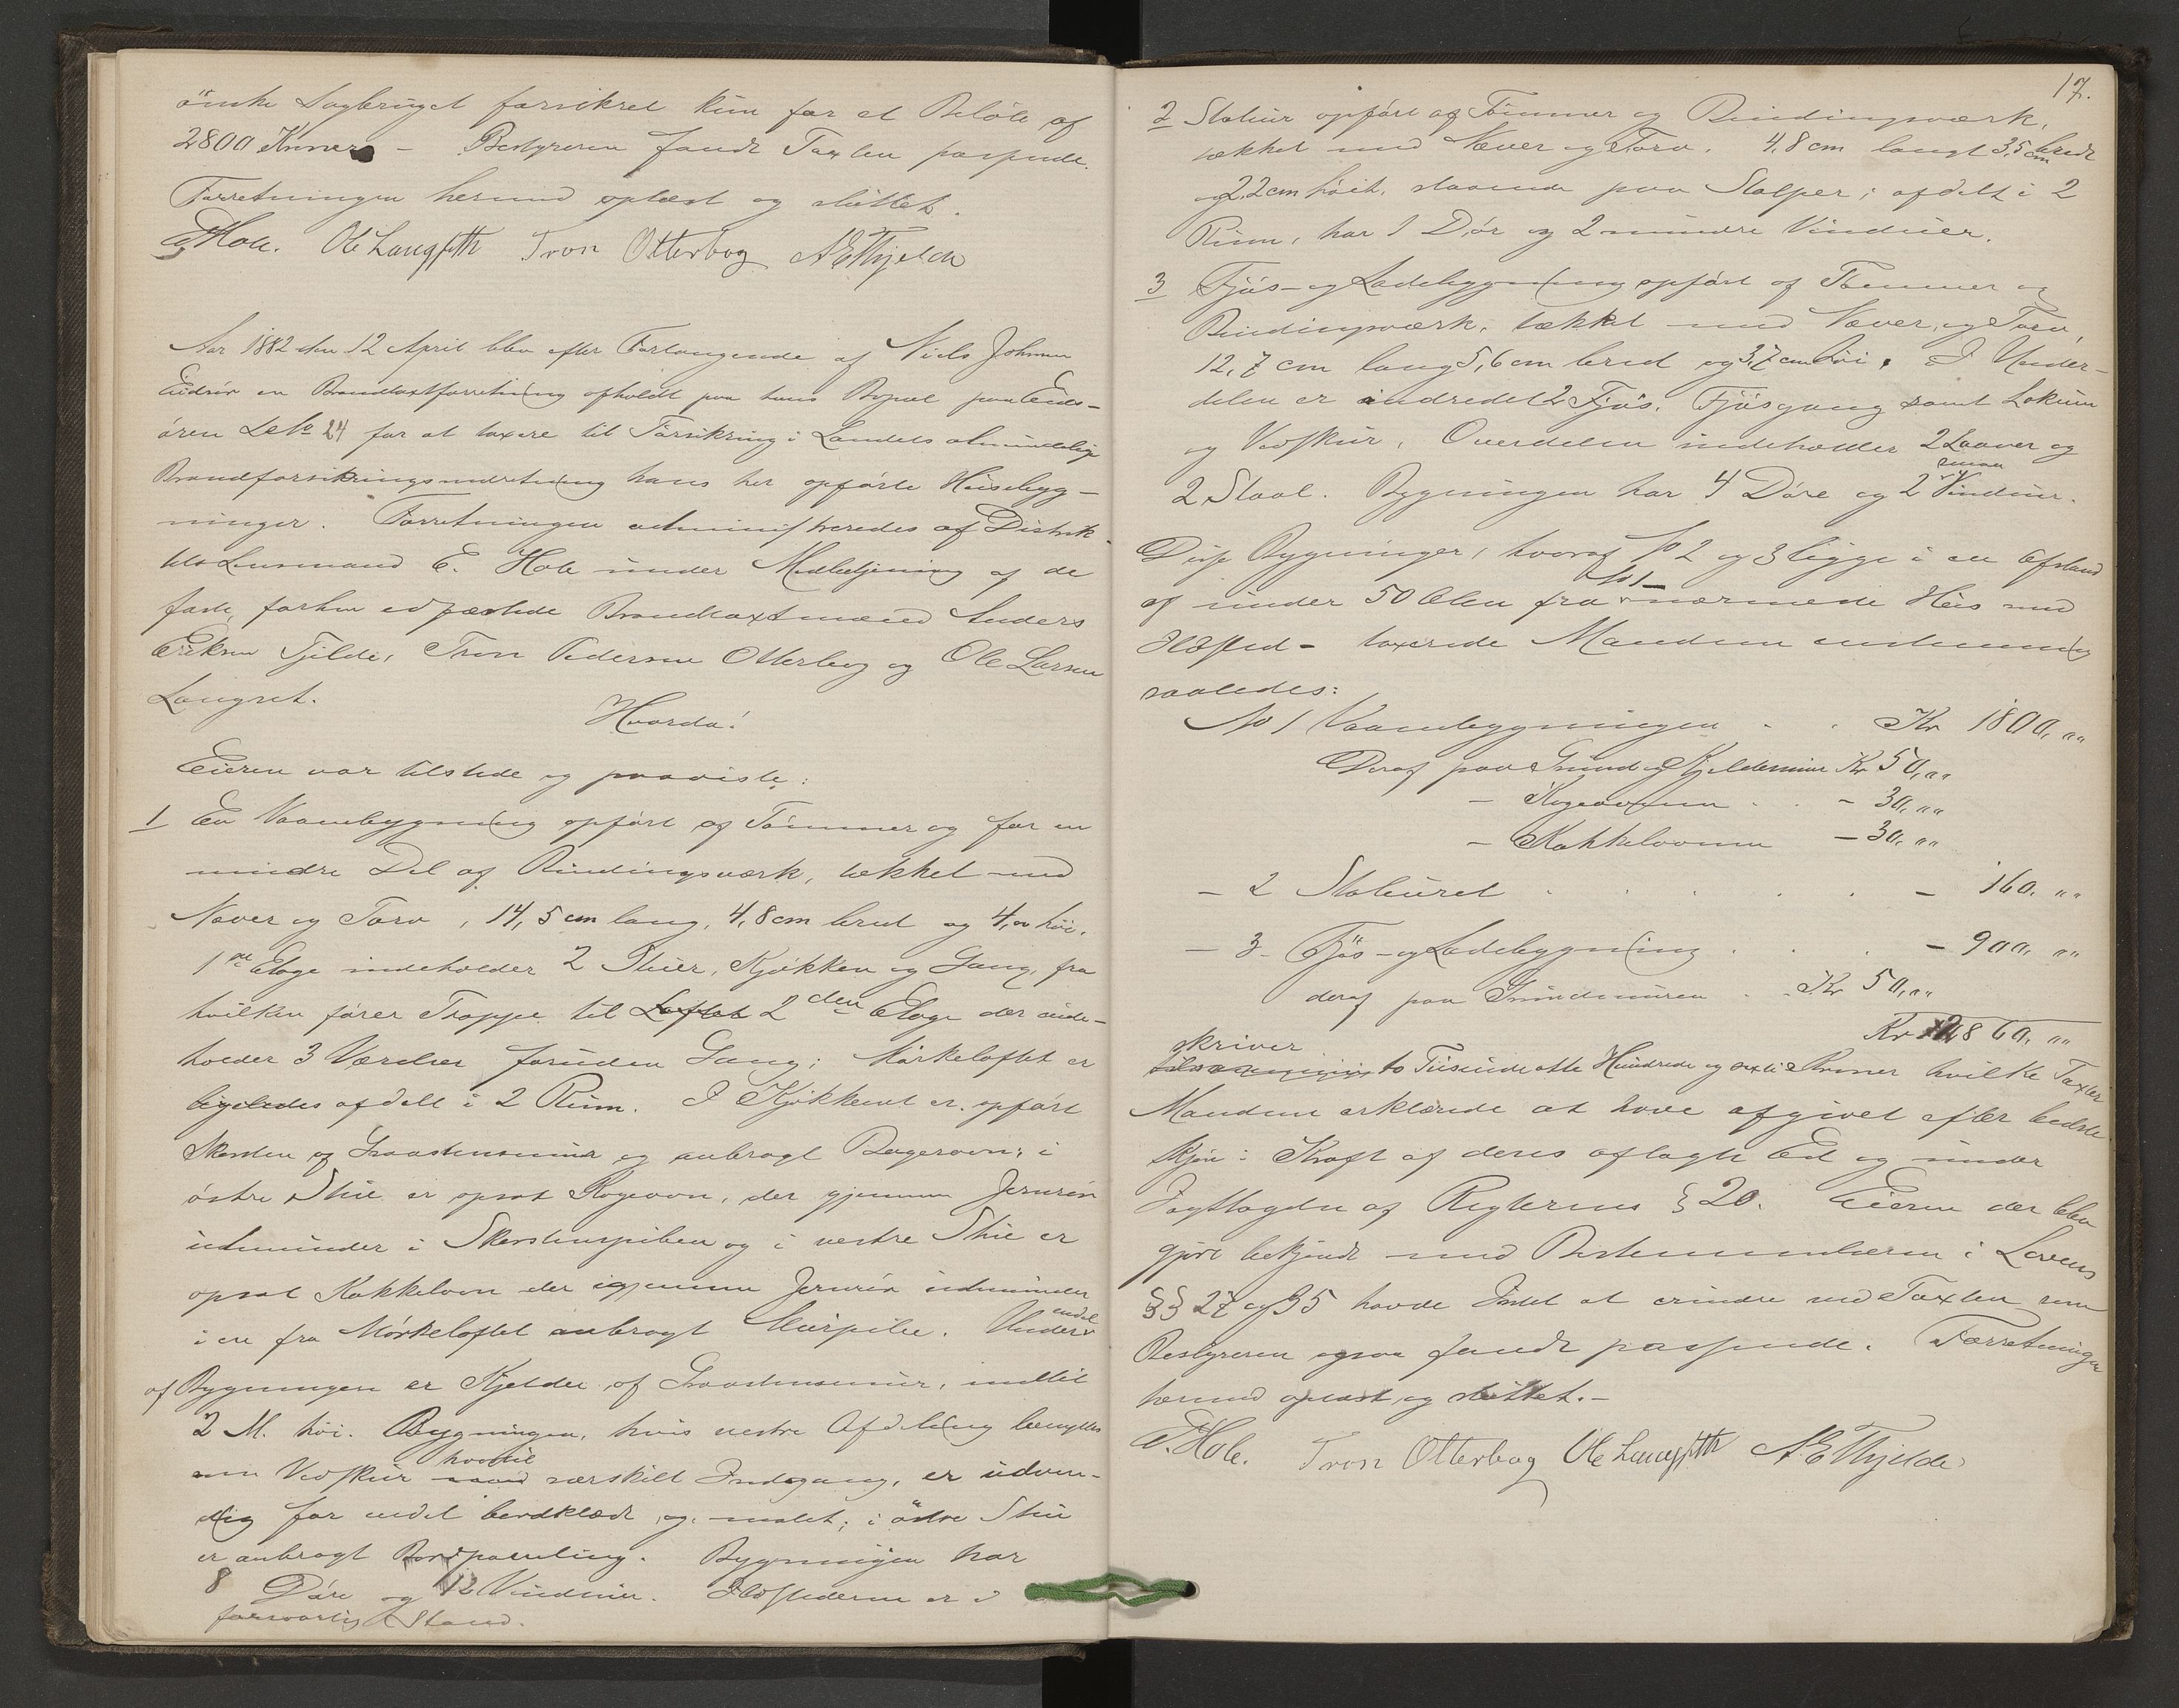 önske Sagbruget forsikret kun for et Beløb af
2800 Kroner - Bestyreren fandt Taxten passende.
Forretningen hermed oplæst og sluttet.
E Hole. Ole Langseth Tron Otterbog A E Thjelde
Aar 1882 den 12 April blev efter Forlangende af Niels Johnsen
Eidsör en Brandtaxtforretning afholdt paa hans Bopæl paa Eids-
ören LNo 24 for at taxere til Forsikring i Landets almindelige
Brandforsikringsindretning hans her opførte Husebyg-
ninger. Forretningen administreredes af Distrik-
tets Lensmand E. Hole under Medbetjening af de
faste, forhen edfæstede Brandtaxtmænd Anders
Eriksen Tjelde, Tron Pedersen Otterbog og Ole Larsen
Langset.
Hvorda!
Eieren var tilstede og paaviste:
1 En Vaanebygning opført af Tömmer og for en
mindre Del af Bindingsværk, tækket med
Næver og Torv, 14,5 cm lang, 4,8 cm bred og 4,00 høi.
1ste Etage indeholder 2 Stuer, Kjøkken og Gang, fra
hvilken fører Trappe til Loftet 2den Etage der inde-
holder 3 Værelser foruden Gang; Mörkeloftet er
ligeledes afdelt i 2 Rum. I Kjökkenet er opført
Skorsten af Graastensmur og anbragt Bagerovn; i
östre Stue er opsat Kogeovn, der gjennem Jernrör
udmunder i Skorstenspiben og i vestre Stue er
opsat Kakkelovn der igjennem Jernrör udmunder
i en fra Mörkeloftet anbragt Murpibe. Under endel
af Bygningen er Kjelder af Graastensmur, indtil
2 M. høi. Bygningen, hvis vestre Afdeling benyttes
som Vedskur hvortil særskilt Indgang, er udven-
dig for endel bordklædt og malet; i östre Stue
er anbragt Bordpaneling. Bygningen har
8 Döre og 12 Vinduer. Ildstederne er i
forsvarlig Stand.
17.
2 Stabur opført af Tömmer og Bindingsværk,
tækket med Næver og Torv. 4,8 cm langt 3,5 cm bredt
og 2,2 cm höit, staaende paa Stolper; afdelt i 2
Rum, har 1 Dör og 2 mindre Vinduer.
3 Fjös- og Ladebygning opført af Tömmer og
Bindingsværk, tækket med Næver og Torv,
12,7 cm lang 5,6 cm bred og 3,7 cm høi. I Under-
delen er indredet 2 Fjös, Fjösgang samt Lokum
og Vedskur. Overdelen indeholder 2 Laaver og
2 Staal. Bygningen har 4 Döre og 2 smaa Vinduer.
Disse Bygninger, hvoraf No 2 og 3 ligge i en Afstand
af under 50 Alen fra No 1 nærmeste Hus med
Ildsted - taxerede Mændene enstemmig
saaledes:
No 1 Vaanebygningen . . Kr 1800, ""
Deraf paa Grund og Kjeldermur Kr 50, ""
- Kogeovnen . . - 30, ""
- Kakkelovnen - 30, ""
- 2 Staburet . . . . - 160, ""
- 3 - Fjös- og Ladebygning . . - 900, ""
deraf paa Grundmuren . Kr 50, ""
Kr 2860, ""
skriver to Tusinde otte Hundrede og sexti Kroner hvilke Taxter
Mændene erklærede at have afgivet efter bedste
Skjön i Kraft af deres aflagte Ed og under
Iagttagelse af Reglernes § 20. Eieren der blev
gjort bekjendt med Bestemmelserne i Lovens
§§ 27 og 35 havde Intet at erindre ved Taxten som
Bestyreren ogsaa fandt passende. Forretningen
hermed oplæst og sluttet.-
E. Hole. Tron Otterbog Ole Langseth A E Thjelde